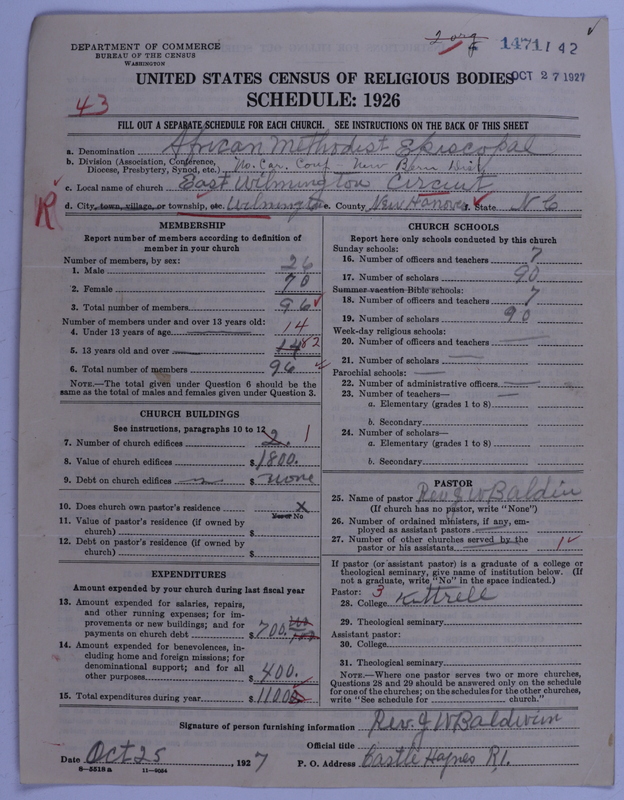 2 org
1471142
DEPARTMENT OF COMMERCE
BUREAU OF THE CENSUS
WASHINGTON
OCT 27 1927
UNITED STATES CENSUS OF RELIGIOUS BODIES
43
SCHEDULE: 1926
FILL OUT A SEPARATE SCHEDULE FOR EACH CHURCH. SEE INSTRUCTIONS ON THE BACK OF THIS SHEET
a. Denomination African Methodist Episcopal
b. Division (Association, Conference, Diocese, Presbytery, Synod, etc.) No. Car. Conf New Bern Dist
c. Local name of church East Wilmington Circuit
R
d. City, town, village, or township, etc. Wilmington e. County New Hanover f. State N C
MEMBERSHIP
Report number of members according to definition of
member in your church
Number of members, by sex:
1. Male 26
2. Female 70
3. Total number of members 96
Number of members under and over 13 years old:
4. Under 13 years of age 14
5. 13 years old and over 14 82
6. Total number of members 96
NOTE.—The total given under Question 6 should be the
same as the total of males and females given under Question 3.
CHURCH BUILDINGS
See instructions, paragraphs 10 to 12
7. Number of church edifices 2. 1
8. Value of church edifices $1800.
9. Debt on church edifices $ none
10. Does church own pastor's residence x
Yes or No
11. Value of pastor's residence (if owned by
church) $
12. Debt on pastor's residence (if owned by
church) $
EXPENDITURES
Amount expended by your church during last fiscal year
13. Amount expended for salaries, repairs,
and other running expenses; for im-
provements or new buildings; and for
payments on church debt $700.
14. Amount expended for benevolences, in-
cluding home and foreign missions; for
denominational support; and for all
other purposes $400.
15. Total expenditures during year $1100
CHURCH SCHOOLS
Report here only schools conducted by this church
Sunday schools:
16. Number of officers and teachers 7
17. Number of scholars 90
Summer vacation Bible schools:
18. Number of officers and teachers 7
19. Number of scholars 90
Week-day religious schools:
20. Number of officers and teachers
21. Number of scholars
Parochial schools:
22. Number of administrative officers
23. Number of teachers—
a. Elementary (grades 1 to 8)
b. Secondary
24. Number of scholars—
a. Elementary (grades 1 to 8)
b. Secondary
PASTOR
25. Name of pastor Rev J W Baldin
(If church has no pastor, write "None")
26. Number of ordained ministers, if any, em-
ployed as assistant pastors
27. Number of other churches served by the
pastor or his assistants 1
If pastor (or assistant pastor) is a graduate of a college or
theological seminary, give name of institution below. (If
not a graduate, write "No" in the space indicated.)
Pastor: 3
28. College Kittrell
29. Theological seminary
Assistant pastor:
30. College
31. Theological seminary
NOTE.—Where one pastor serves two or more churches,
Questions 28 and 29 should be answered only on the schedule
for one of the churches; on the schedules for the other churches,
write "See schedule for church."
Signature of person furnishing information Rev. J W Baldwin
Official title
Date Oct 25, 1927 P. O. Address Castle Haynes R 1.
8-5518 a 11-9054